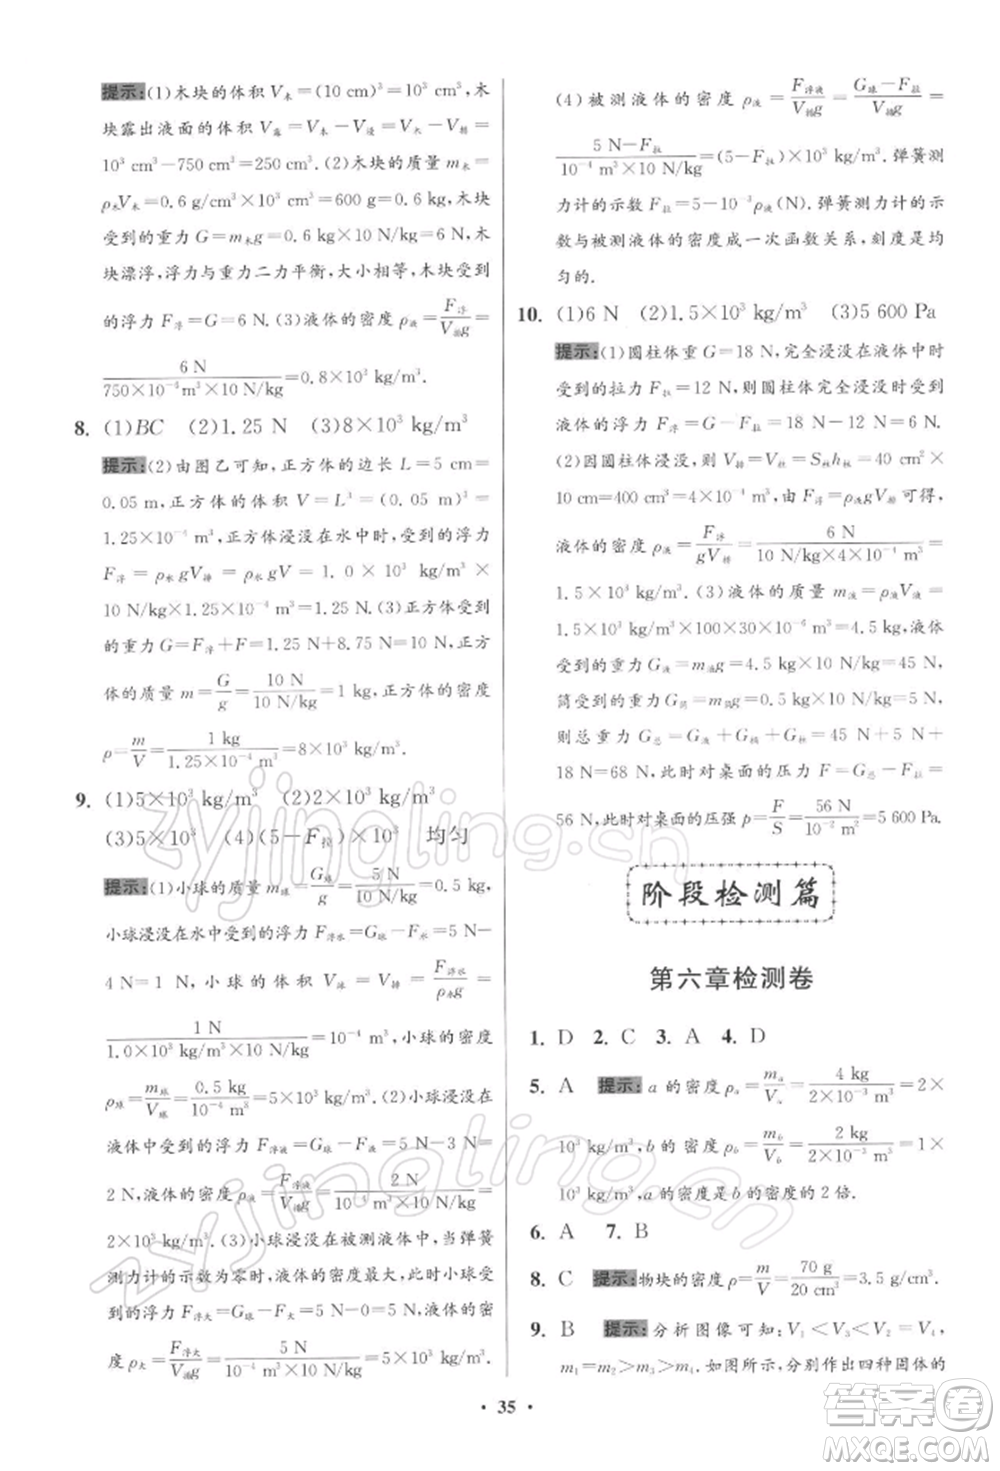 提示:(1)木块的体积 V木=(10 cm)³=10³ cm³,木
块露出液面的体积 V露=V木-V浸=V木-V排=
10³ cm³-750 cm³=250 cm³. (2)木块的质量 m木=
ρ木V木=0.6 g/cm³×10³ cm³=600 g=0.6 kg,木块
受到的重力 G=m木g=0.6 kg×10 N/kg=6 N,木
块漂浮,浮力与重力二力平衡,大小相等,木块受到
的浮力 F浮=G=6 N. (3)液体的密度 ρ液=F浮/V排g=
6 N/750×10⁻⁶ m³×10 N/kg=0.8×10³ kg/m³.
8. (1)BC (2)1.25 N (3)8×10³ kg/m³
提示:(2)由图乙可知,正方体的边长 L=5 cm=
0.05 m,正方体的体积 V=L³=(0.05 m)³=
1.25×10⁻⁴ m³,正方体浸没在水中时,受到的浮力
F浮=ρ水gV排=ρ水gV=1.0×10³ kg/m³×
10 N/kg×1.25×10⁻⁴ m³=1.25 N. (3)正方体受到
的重力 G=F浮+F=1.25 N+8.75 N=10 N,正方
体的质量 m=G/g=10 N/10 N/kg=1 kg,正方体的密度
ρ=m/V=1 kg/1.25×10⁻⁴ m³=8×10³ kg/m³.
9. (1)5×10³ kg/m³ (2)2×10³ kg/m³
(3)5×10³ (4)(5-F拉)×10³ 均匀
提示:(1)小球的质量 m球=G球/g=5 N/10 N/kg=0.5 kg,
小球浸没在水中受到的浮力 F浮水=G球-F水=5 N-
4 N=1 N,小球的体积 V球=V排=F浮水/ρ水g=
1 N/1.0×10³ kg/m³×10 N/kg=10⁻⁴ m³,小球的密度
ρ球=m球/V球=0.5 kg/10⁻⁴ m³=5×10³ kg/m³. (2)小球浸没在
液体中受到的浮力 F浮液=G球-F液=5 N-3 N=
2 N,液体的密度 ρ液=F浮液/V排g=2 N/10⁻⁴ m³×10 N/kg=
2×10³ kg/m³. (3)小球浸没在被测液体中,当弹簧
测力计的示数为零时,液体的密度最大,此时小球受
到的浮力 F浮大=G球-F大=5 N-0=5 N,液体的密
度 ρ大=F浮大/V排g=5 N/10⁻⁴ m³×10 N/kg=5×10³ kg/m³.
(4)被测液体的密度 ρ液=F浮液/V排g=G球-F拉/V排g=
5 N-F拉/10⁻⁴ m³×10 N/kg=(5-F拉)×10³ kg/m³. 弹簧测
力计的示数 F拉=5-10⁻³ρ液(N). 弹簧测力计的示
数与被测液体的密度成一次函数关系,刻度是均
匀的.
10. (1)6 N (2)1.5×10³ kg/m³ (3)5 600 Pa
提示:(1)圆柱体重 G=18 N,完全浸没在液体中时
受到的拉力 F拉=12 N,则圆柱体完全浸没时受到
液体的浮力 F浮=G-F拉=18 N-12 N=6 N.
(2)因圆柱体浸没,则 V排=V柱=S柱h柱=40 cm²×
10 cm=400 cm³=4×10⁻⁴ m³,由 F浮=ρ液gV排可得,
液体的密度 ρ液=F浮/gV排=6 N/10 N/kg×4×10⁻⁴ m³=
1.5×10³ kg/m³. (3)液体的质量 m液=ρ液V液=
1.5×10³ kg/m³×100×30×10⁻⁶ m³=4.5 kg,液体
受到的重力 G液=m液g=4.5 kg×10 N/kg=45 N,
筒受到的重力 G筒=m筒g=0.5 kg×10 N/kg=5 N,
则总重力 G总=G液+G桶+G柱=45 N+5 N+
18 N=68 N,此时对桌面的压力 F=G总-F拉=
56 N,此时对桌面的压强 p=F/S=56 N/10⁻² m²=5 600 Pa.
阶段检测篇
第六章检测卷
1. D 2. C 3. A 4. D
5. A 提示:a 的密度 ρa=ma/Va=4 kg/2×10⁻³ m³=2×
10³ kg/m³,b 的密度 ρb=mb/Vb=2 kg/2×10⁻³ m³=1×
10³ kg/m³,a 的密度是 b 的密度的 2 倍.
6. A 7. B
8. C 提示:物块的密度 ρ=m/V=70 g/20 cm³=3.5 g/cm³.
9. B 提示:分析图像可知:V₁<V₃<V₂=V₄,
m₁=m₂>m₃=m₄. 如图所示,分别作出四种固体的
• 35 •
zyjingling.cn
zyjingling.cn
答案圈
MXQE.COM